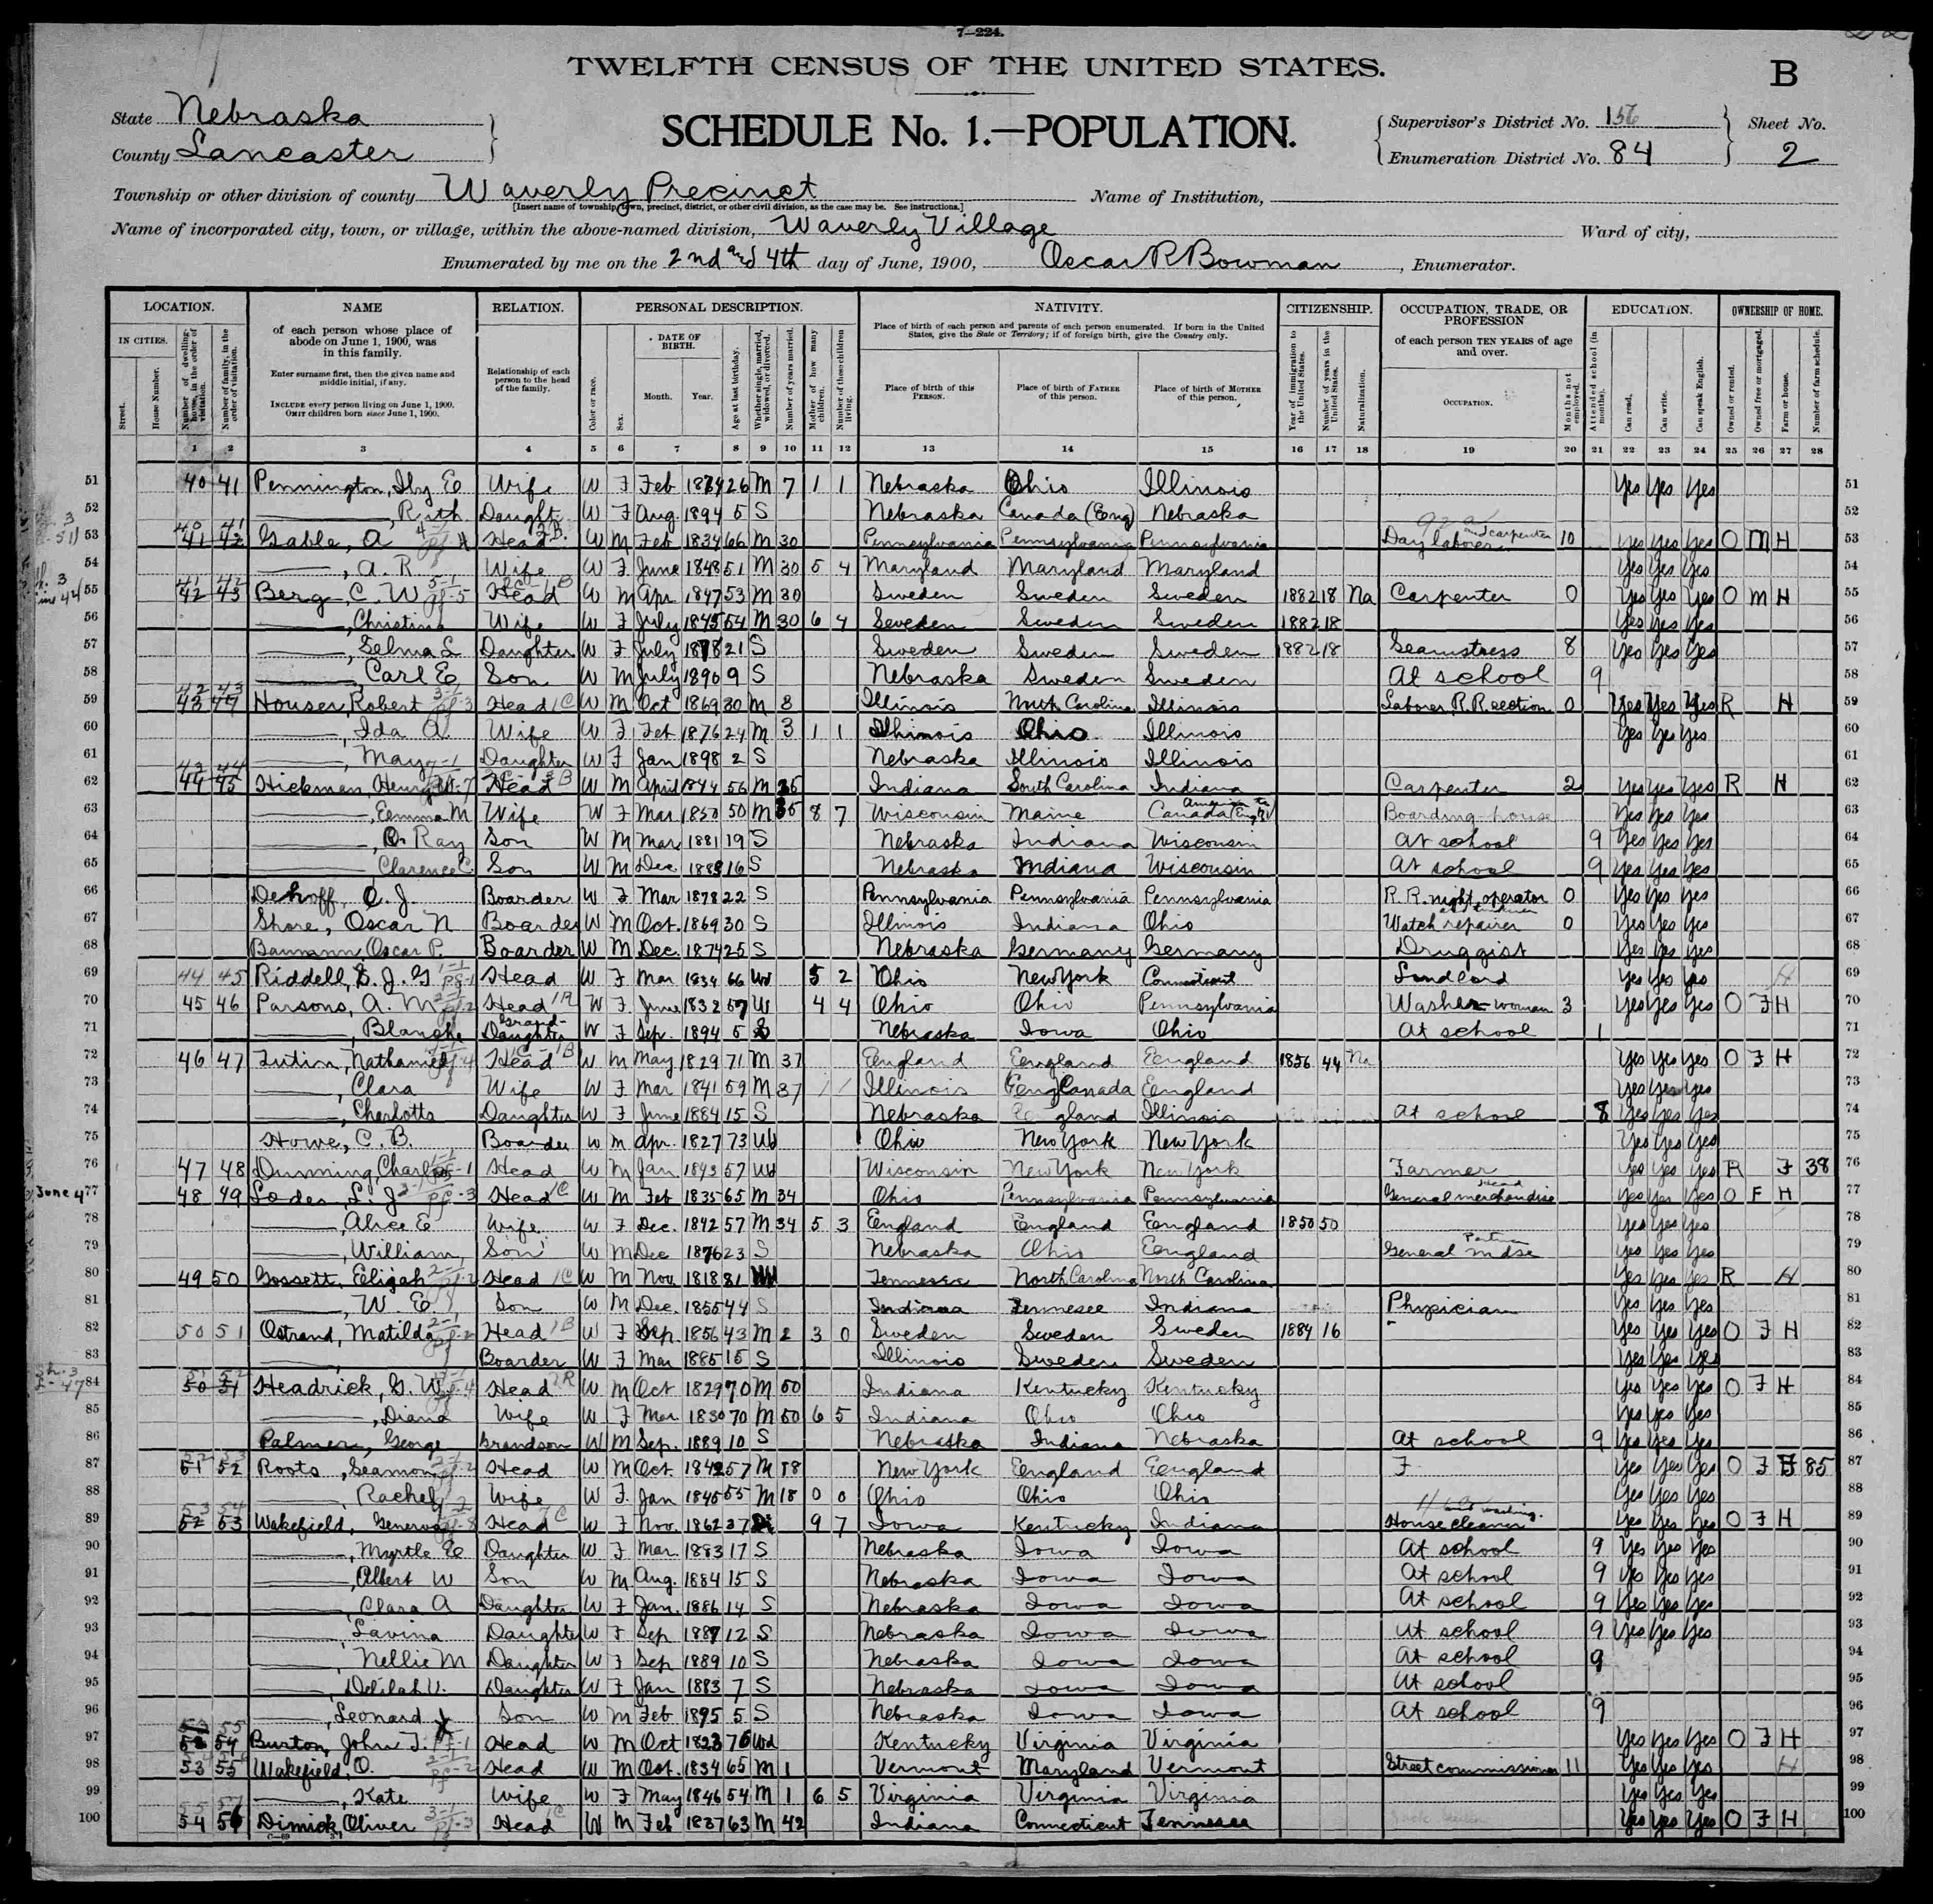 7—224.
TWELFTH CENSUS OF THE UNITED STATES.
B
State Nebraska
County Lancaster
SCHEDULE No. 1.—POPULATION.
Supervisor's District No. 156
Enumeration District No. 84
Sheet No. 2
Township or other division of county Waverly Precinct
[Insert name of township, town, precinct, district, or other civil division, as the case may be. See instructions.]
Name of Institution,
Name of incorporated city, town, or village, within the above-named division, Waverly Village
Ward of city,
Enumerated by me on the 2nd and 4th day of June, 1900, Oscar R Bowman, Enumerator.
LOCATION. NAME RELATION. PERSONAL DESCRIPTION. NATIVITY. CITIZENSHIP. OCCUPATION, TRADE, OR PROFESSION EDUCATION. OWNERSHIP OF HOME.
IN CITIES. Street. House Number. Number of dwelling-house, in the order of visitation. Number of family, in the order of visitation.
of each person whose place of abode on June 1, 1900, was in this family.
Enter surname first, then the given name and middle initial, if any.
INCLUDE every person living on June 1, 1900. OMIT children born since June 1, 1900.
Relationship of each person to the head of the family.
Color or race. Sex. DATE OF BIRTH. Month. Year. Age at last birthday. Whether single, married, widowed, or divorced. Number of years married. Mother of how many children. Number of these children living.
Place of birth of each person and parents of each person enumerated. If born in the United States, give the State or Territory; if of foreign birth, give the Country only.
Place of birth of this PERSON. Place of birth of FATHER of this person. Place of birth of MOTHER of this person.
Year of immigration to the United States. Number of years in the United States. Naturalization.
of each person TEN YEARS of age and over.
OCCUPATION. Months not employed.
Attended school (in months). Can read. Can write. Can speak English.
Owned or rented. Owned free or mortgaged. Farm or house. Number of farm schedule.
1 2 3 4 5 6 7 8 9 10 11 12 13 14 15 16 17 18 19 20 21 22 23 24 25 26 27 28
51 40 41 Pennington, E Wife W F Feb 1874 26 M 7 1 1 Nebraska Ohio Illinois Yes Yes Yes 51
52 , Ruth Daught W F Aug. 1894 5 S Nebraska Canada (Eng) Nebraska 52
53 41 42 Gable, A Head W M Feb 1834 66 M 30 Pennsylvania Pennsylvania Pennsylvania Day laborer and carpenter 10 Yes Yes Yes O M H 53
54 , A. R. Wife W F June 1848 51 M 30 5 4 Maryland Maryland Maryland Yes Yes Yes 54
55 42 43 Berg, C. W Head W M Apr 1847 53 M 30 Sweden Sweden Sweden 1882 18 Na Carpenter 0 Yes Yes Yes O M H 55
56 , Christina Wife W F July 1845 54 M 30 6 4 Seweden Sweden Sweden 1882 18 Yes Yes Yes 56
57 , Selma L Daughter W F July 1878 21 S Sweden Sweden Sweden 1882 18 Seamstress 8 Yes Yes Yes 57
58 Carl E Son W M July 1890 9 S Nebraska Sweden Sweden At school 9 58
59 43 44 Houser, Robert Head W M Oct 1869 30 M 3 Illinois North Carolina Illinois Laborer R.R. section 0 Yes Yes Yes R H 59
60 , Ida A. Wife W F Feb 1876 24 M 3 1 1 Illinois Ohio Illinois Yes Yes Yes 60
61 , May Daughter W F Jan 1898 2 S Nebraska Illinois Illinois 61
62 44 45 Hickman, Henry Head W M April 1844 56 M 35 Indiana South Carolina Indiana Carpenter 2 Yes Yes Yes R H 62
63 , Emma M Wife W F Mar 1850 50 M 35 8 7 Wisconsin Maine Canada Boarding house Yes Yes Yes 63
64 , Ray Son W M Mar 1881 19 S Nebraska Indiana Wisconsin At school 9 Yes Yes Yes 64
65 Clarence C Son W M Dec 1883 16 S Nebraska Indiana Wisconsin At school 9 Yes Yes Yes 65
66 Dehoff, C. J. Boarder W F Mar 1878 22 S Pennsylvania Pennsylvania Pennsylvania R.R. night operator 0 Yes Yes Yes 66
67 Shore, Oscar N Boarder W M Oct. 1869 30 S Illinois Indiana Ohio Watch repairer 0 Yes Yes Yes 67
68 Baumann Oscar P. Boarder W M Dec. 1874 25 S Nebraska Germany Germany Druggist Yes Yes Yes 68
69 44 45 Riddell, S. J. G Head W F Mar 1834 66 Wd 5 2 Ohio New York Connecticut Landlord Yes Yes Yes H 69
70 45 46 Parsons, A. M Head W F June 1832 67 W 4 4 Ohio Ohio Pennsylvania Washer woman 3 Yes Yes Yes O F H 70
71 , Blanche Grand-Daughter W F Sep. 1894 5 S Nebraska Iowa Ohio At school 1 71
72 46 47 Tutin, Nathaniel Head W M May 1829 71 M 37 England England England 1856 44 Na Yes Yes Yes O F H 72
73 , Clara Wife W F Mar 1841 59 M 37 1 1 Illinois Eng Canada England Yes Yes Yes 73
74 , Charlotte Daughter W F June 1884 15 S Nebraska England Illinois At school 8 Yes Yes Yes 74
75 Howe, C. B. Boarder W M Apr. 1827 73 Wd Ohio New York New York Yes Yes Yes 75
76 47 48 Dunning, Charles Head W M Jan. 1843 57 Wd Wisconsin New York New York Farmer Yes Yes Yes R F 38 76
June 4 77 48 49 Loder, L. J Head W M Feb 1835 65 M 34 Ohio Pennsylvania Pennsylvania General merchandise Yes Yes Yes O F H 77
78 , Alice E Wife W F Dec. 1842 57 M 34 5 3 England England England 1850 50 Yes Yes Yes 78
79 , William, Son W M Dec 1876 23 S Nebraska Ohio England General Mdse Yes Yes Yes 79
80 49 50 Gossett, Elijah Head W M Nov. 1818 81 Wd Tennessee North Carolina North Carolina Yes Yes Yes R H 80
81 , W. E. Son W M Dec. 1855 44 S Indiana Tennesee Indiana Physician Yes Yes Yes 81
82 50 51 Ostrand, Matilda Head W F Sep. 1856 43 M 2 3 0 Sweden Sweden Sweden 1884 16 Yes Yes Yes O F H 82
83 Boarder W F Mar 1885 15 S Illinois Sweden Sweden Yes Yes Yes 83
84 50 51 Headrick, G. W Head W M Oct 1829 70 M 50 Indiana Kentucky Kentucky Yes Yes Yes O F H 84
85 , Diana Wife W F Mar 1830 70 M 50 6 5 Indiana Ohio Ohio Yes Yes Yes 85
86 Palmer, George Grandson W M Sep. 1889 10 S Nebraska Indiana Nebraska At school 9 Yes Yes Yes 86
87 51 52 Roots, Seamon Head W M Oct. 1842 57 M 18 New York England England F Yes Yes Yes O F F 85 87
88 , Rachel Wife W F. Jan 1845 55 M 18 0 0 Ohio Ohio Ohio Yes Yes Yes 88
89 52 53 Wakefield, Generva Head W F Nov. 1862 37 9 7 Iowa Kentucky Indiana House cleaner and washing. Yes Yes Yes O F H 89
90 , Myrtle E Daughter W F Mar. 1883 17 S Nebraska Iowa Iowa At school 9 Yes Yes Yes 90
91 , Albert W Son W M Aug. 1884 15 S Nebraska Iowa Iowa At school 9 Yes Yes Yes 91
92 , Clara A Daughter W F Jan. 1886 14 S Nebraska Iowa Iowa At school 9 Yes Yes Yes 92
93 , Lavina Daughter W F Sep 1887 12 S Nebraska Iowa Iowa At school 9 Yes Yes Yes 93
94 , Nellie M Daughter W F Sep 1889 10 S Nebraska Iowa Iowa At school 9 94
95 , Delilah V. Daughter W F Jan 1883 7 S Nebraska Iowa Iowa At school 95
96 , Leonard Son W M Feb 1895 5 S Nebraska Iowa Iowa At school 9 96
97 54 Burton, John T. Head W M Oct 1823 76 Wd Kentucky Virginia Virginia Yes Yes Yes O F H 97
98 53 55 Wakefield, O. Head W M Oct. 1834 65 M 1 Vermont Maryland Vermont Street commissioner 11 Yes Yes Yes H 98
99 , Kate Wife W F May 1846 54 M 1 6 5 Virginia Virginia Virginia Yes Yes Yes 99
100 54 56 Dimick, Oliver Head W M Feb 1837 63 M 42 Indiana Connecticut Tennesee Yes Yes Yes O F H 100